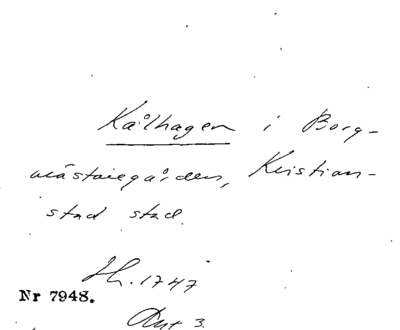 Kålhagen i Borg-
mästaregården, Kristian-
stad stad.
Jh. 1747
Nr 7948.
Ant 3.